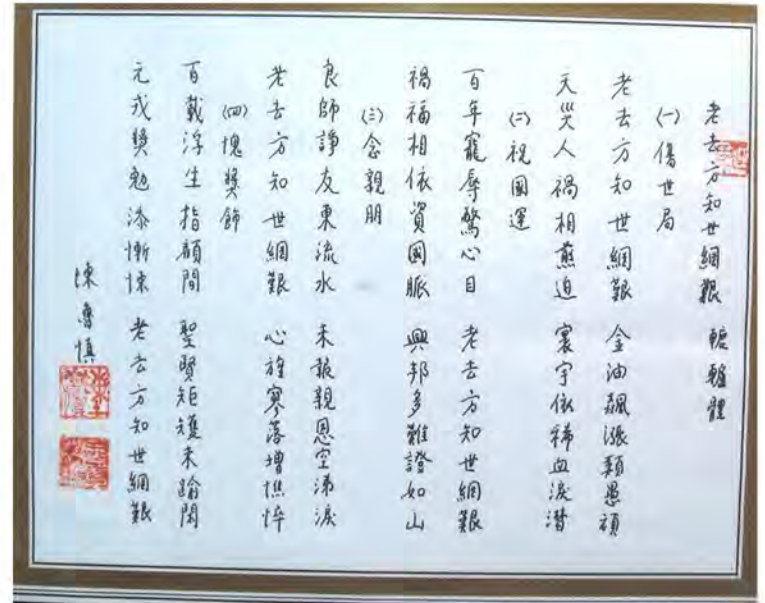 老去方知世網艱 轆轤體
(一)傷世局
老去方知世網艱 金油飆漲類愚頑
天災人禍相煎迫 寰宇依稀血淚潸
(二)祝國運
百年寵辱驚心目 老去方知世網艱
禍福相依資國脈 興邦多難證如山
(三)念親朋
良師諍友東流水 未報親恩空涕淚
老去方知世網艱 心旌寥落增憔悴
(四)愧獎飾
百載浮生指顧間 聖賢矩矱未踰閑
元戎獎勉添慚悚 老去方知世網艱
陳魯慎